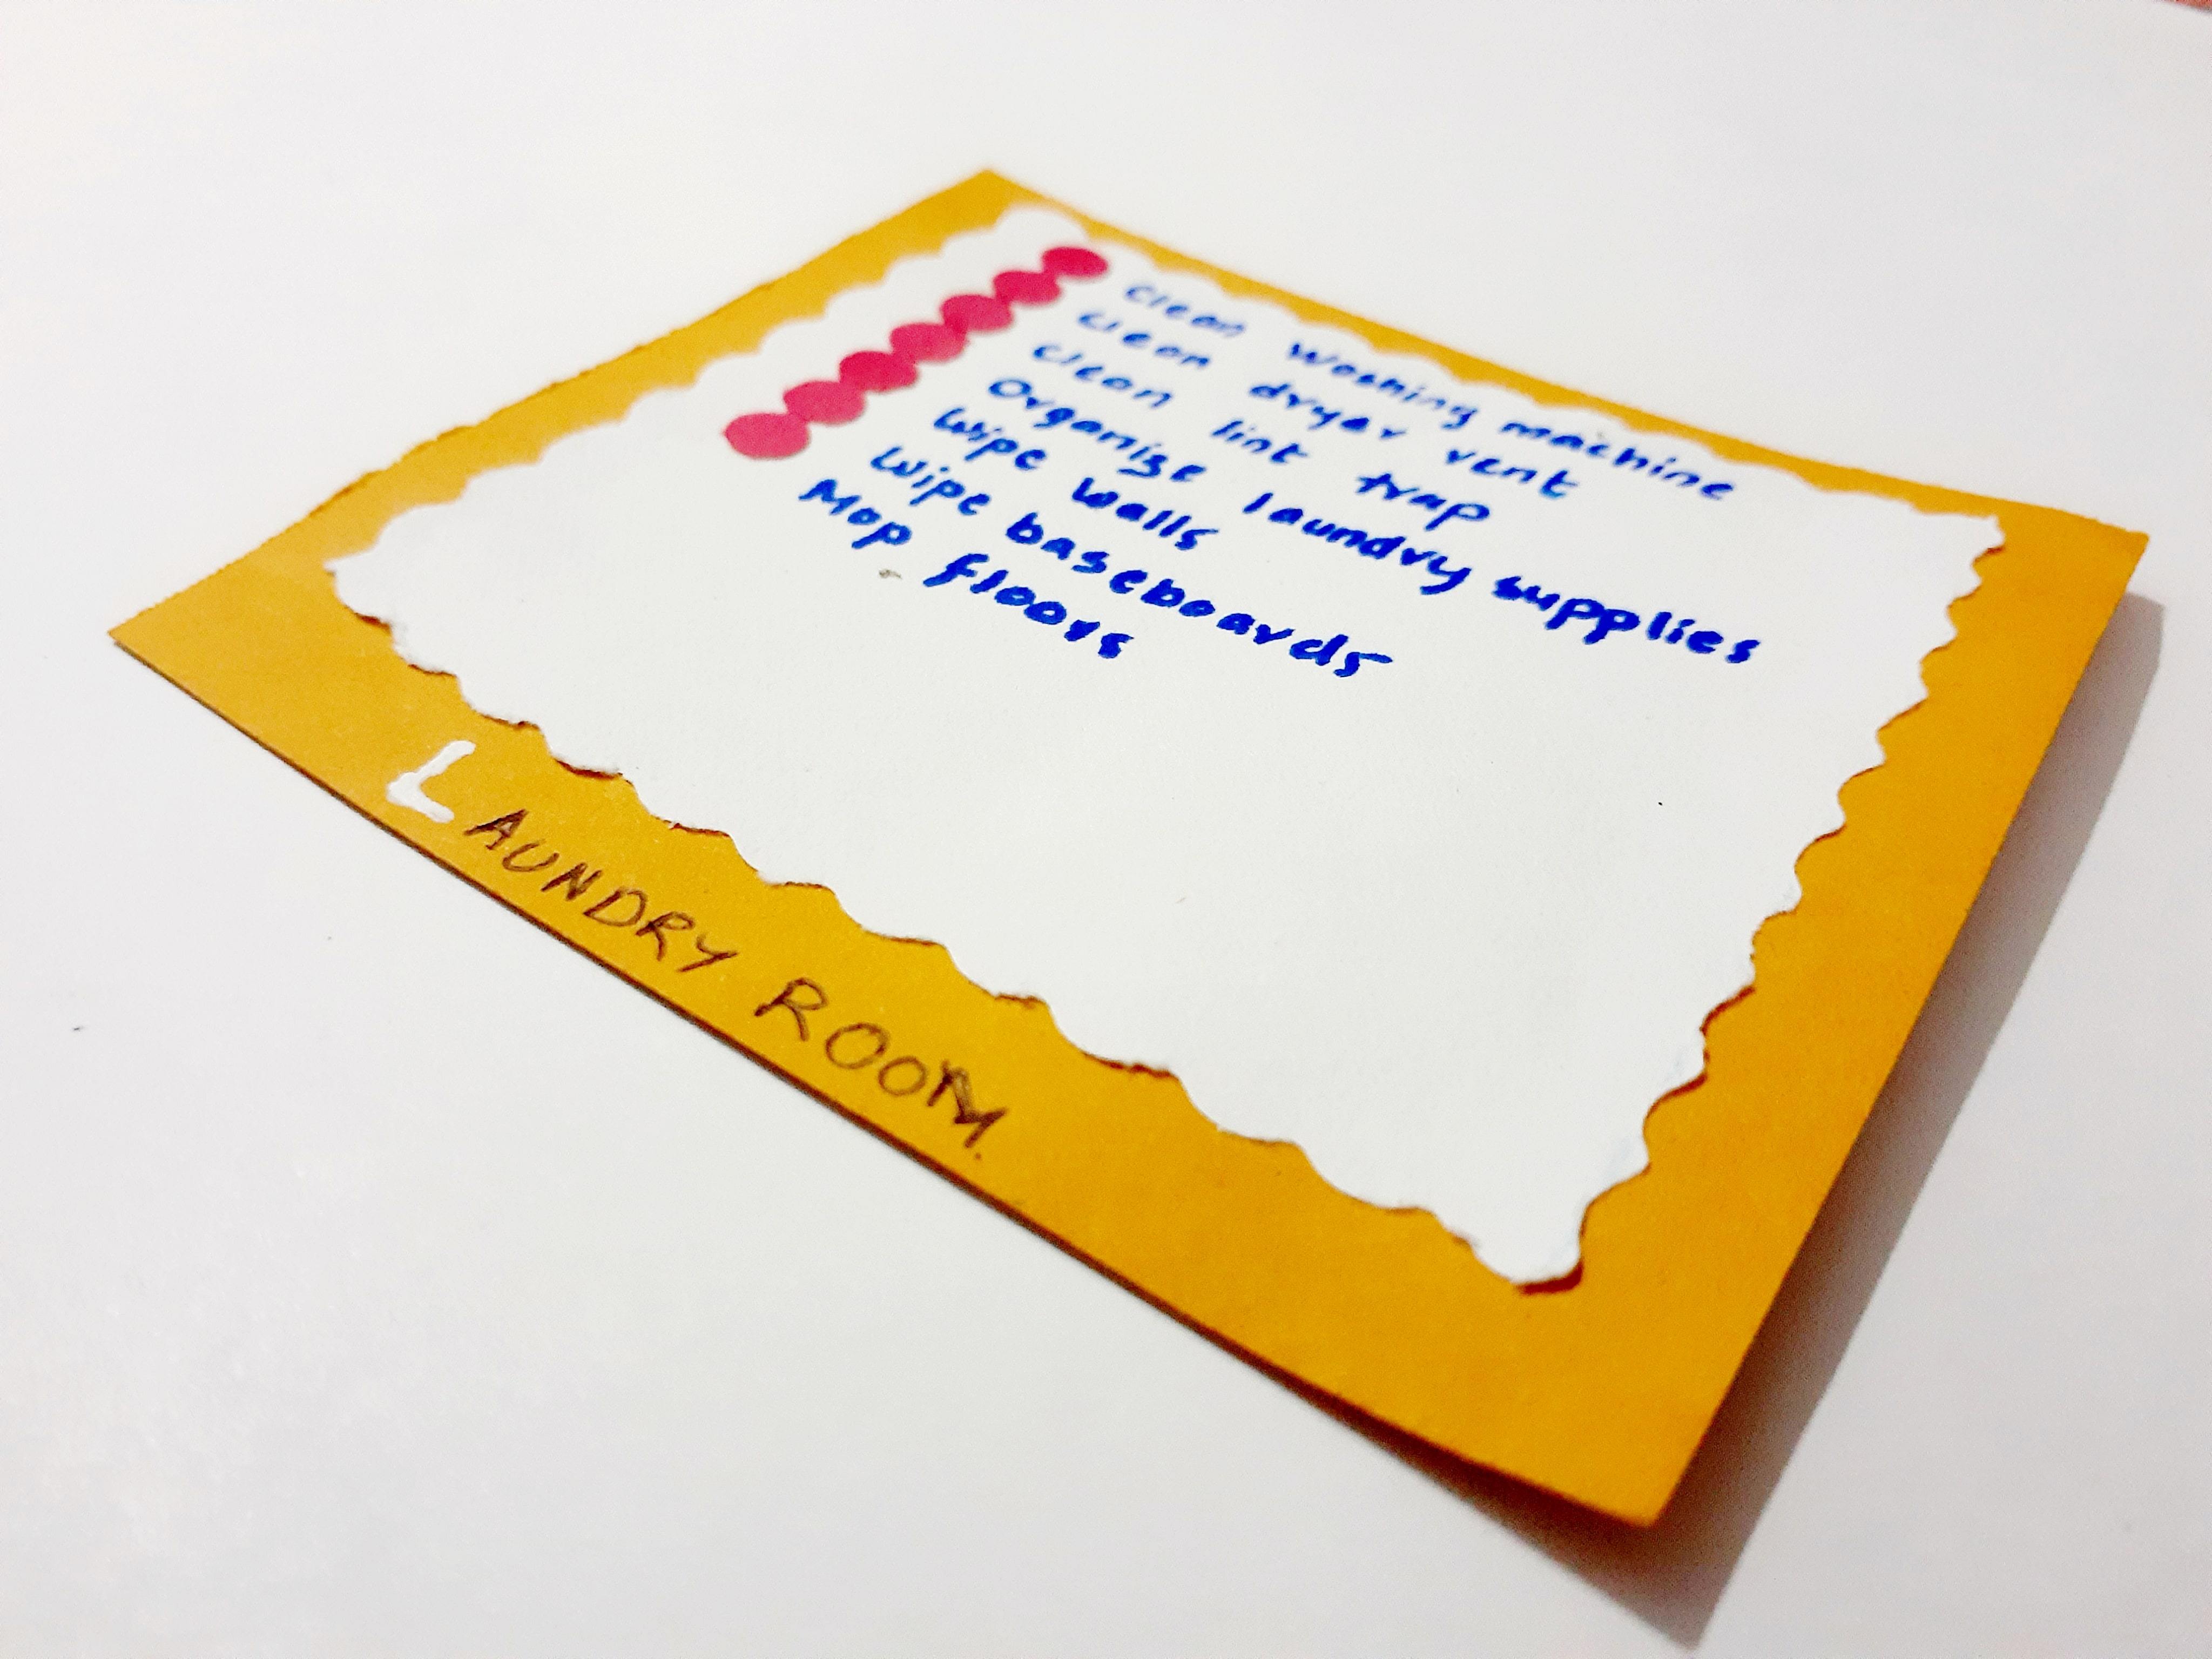 Clean Washing machine
clean dryer vent
clean lint trap
Organise laundry supplies
Wipe walls
Wipe baseboards
Mop floors
LAUNDRY ROOM.